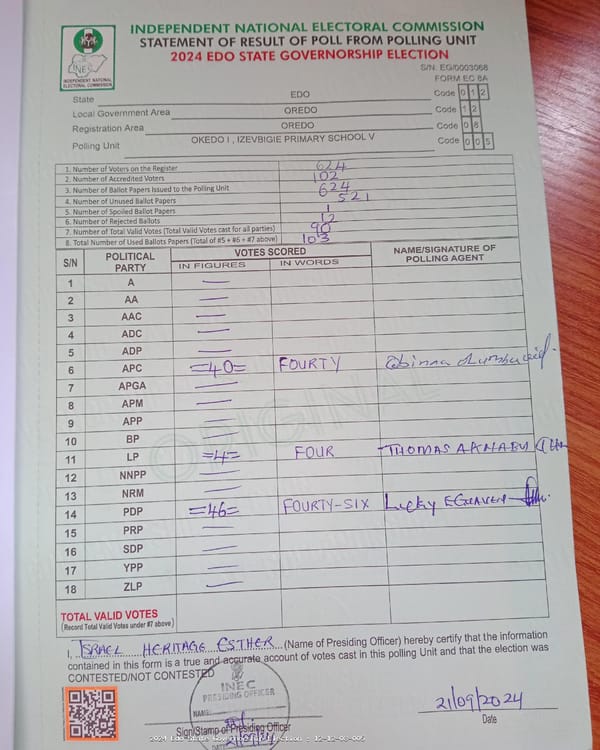 INDEPENDENT NATIONAL ELECTORAL COMMISSION
STATEMENT OF RESULT OF POLL FROM POLLING UNIT
2024 EDO STATE GOVERNORSHIP ELECTION
INEC
INDEPENDENT NATIONAL
ELECTORAL COMMISSION
S/N: EG/0003068
FORM EC 8A
State EDO Code 0 1 2
Local Government Area OREDO Code 1 2
Registration Area OREDO Code 0 8
Polling Unit OKEDO I , IZEVBIGIE PRIMARY SCHOOL V Code 0 0 5
1. Number of Voters on the Register 624
2. Number of Accredited Voters 102
3. Number of Ballot Papers Issued to the Polling Unit 624
4. Number of Unused Ballot Papers 521
5. Number of Spoiled Ballot Papers 1
6. Number of Rejected Ballots 12
7. Number of Total Valid Votes (Total Valid Votes cast for all parties) 90
8. Total Number of Used Ballots Papers (Total of #5 + #6 + #7 above) 103
S/N POLITICAL PARTY VOTES SCORED NAME/SIGNATURE OF POLLING AGENT
IN FIGURES IN WORDS
1 A —
2 AA —
3 AAC —
4 ADC —
5 ADP —
6 APC =40= FOURTY
7 APGA —
8 APM —
9 APP —
10 BP —
11 LP =4= FOUR THOMAS
12 NNPP —
13 NRM —
14 PDP =46= FOURTY-SIX Lucky
15 PRP —
16 SDP —
17 YPP —
18 ZLP —
ORIGINAL
TOTAL VALID VOTES
(Record Total Valid Votes under #7 above)
I, ISRAEL HERITAGE ESTHER (Name of Presiding Officer) hereby certify that the information
contained in this form is a true and accurate account of votes cast in this polling Unit and that the election was
CONTESTED/NOT CONTESTED
INEC
PRESIDING OFFICER
NAME:
Sign/Stamp of Presiding Officer
DATE 21/09/24
21/09/2024
Date